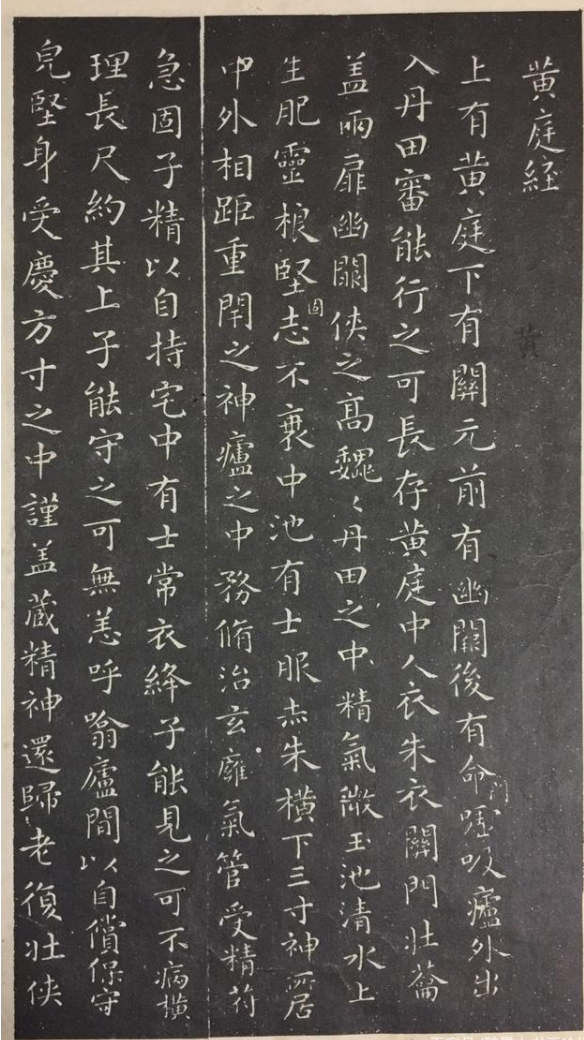 黄庭経
上有黄庭下有關元前有幽闕後有命門嘘吸廬外出
入丹田審能行之可長存黄庭中人衣朱衣關門壯蘥
盖兩扉幽闕俠之髙魏〻丹田之中精氣微玉池清水上
生肥靈根堅固志不衰中池有士服赤朱横下三寸神所居
中外相距重閇之神廬之中務脩治玄癰氣管受精符
急固子精以自持宅中有士常衣絳子能見之可不病横
理長尺約其上子能守之可無恙呼噏廬間以自償保守
皃堅身受慶方寸之中謹盖蔵精神還歸老復壯俠
黄